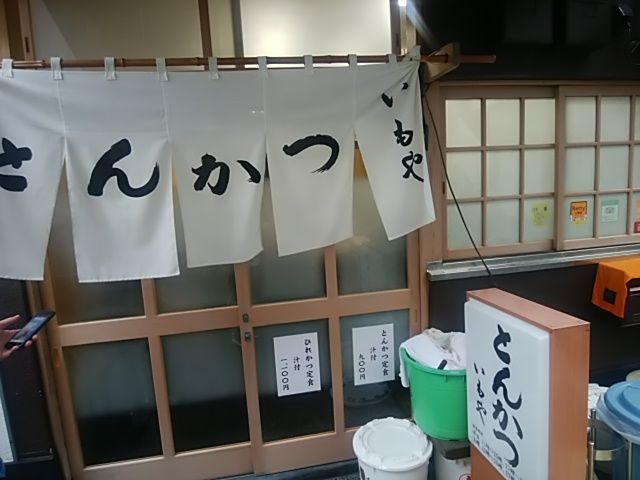 さんかつ
いもや
とんかつ定食
汁付
九〇〇円
ひれかつ定食
汁付
一、二〇〇円
とんかつ
いもや